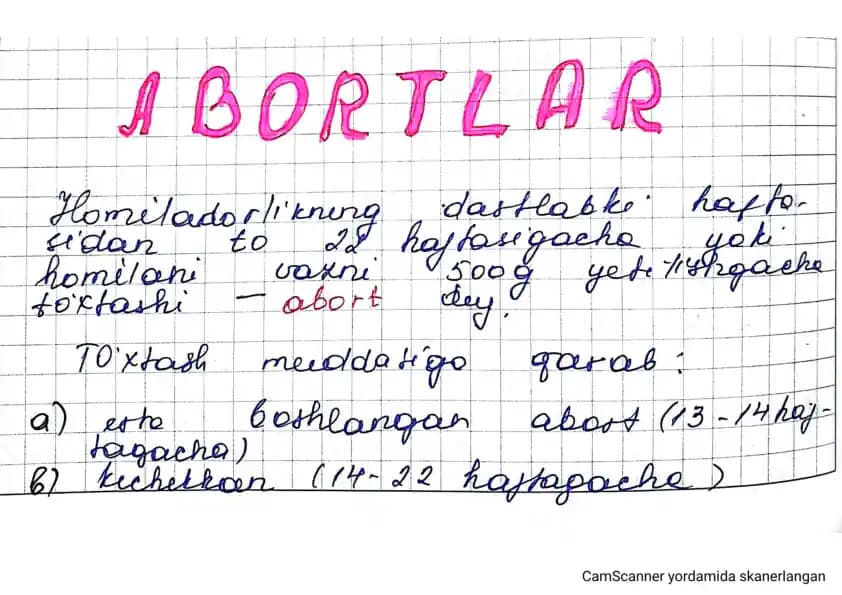 ABORTLAR
Homiladorlikning dastlabki hafta-
sidan to 22 haftasigacha yoki
homilani vazni 500g yetilishgacha
to'xtashi – abort dey.
TO'xtash muddatiga qarab:
a) erta boshlangan abort (13-14 haf-
tagacha)
b) kechikkan (14-22 haftagacha)
CamScanner yordamida skanerlangan